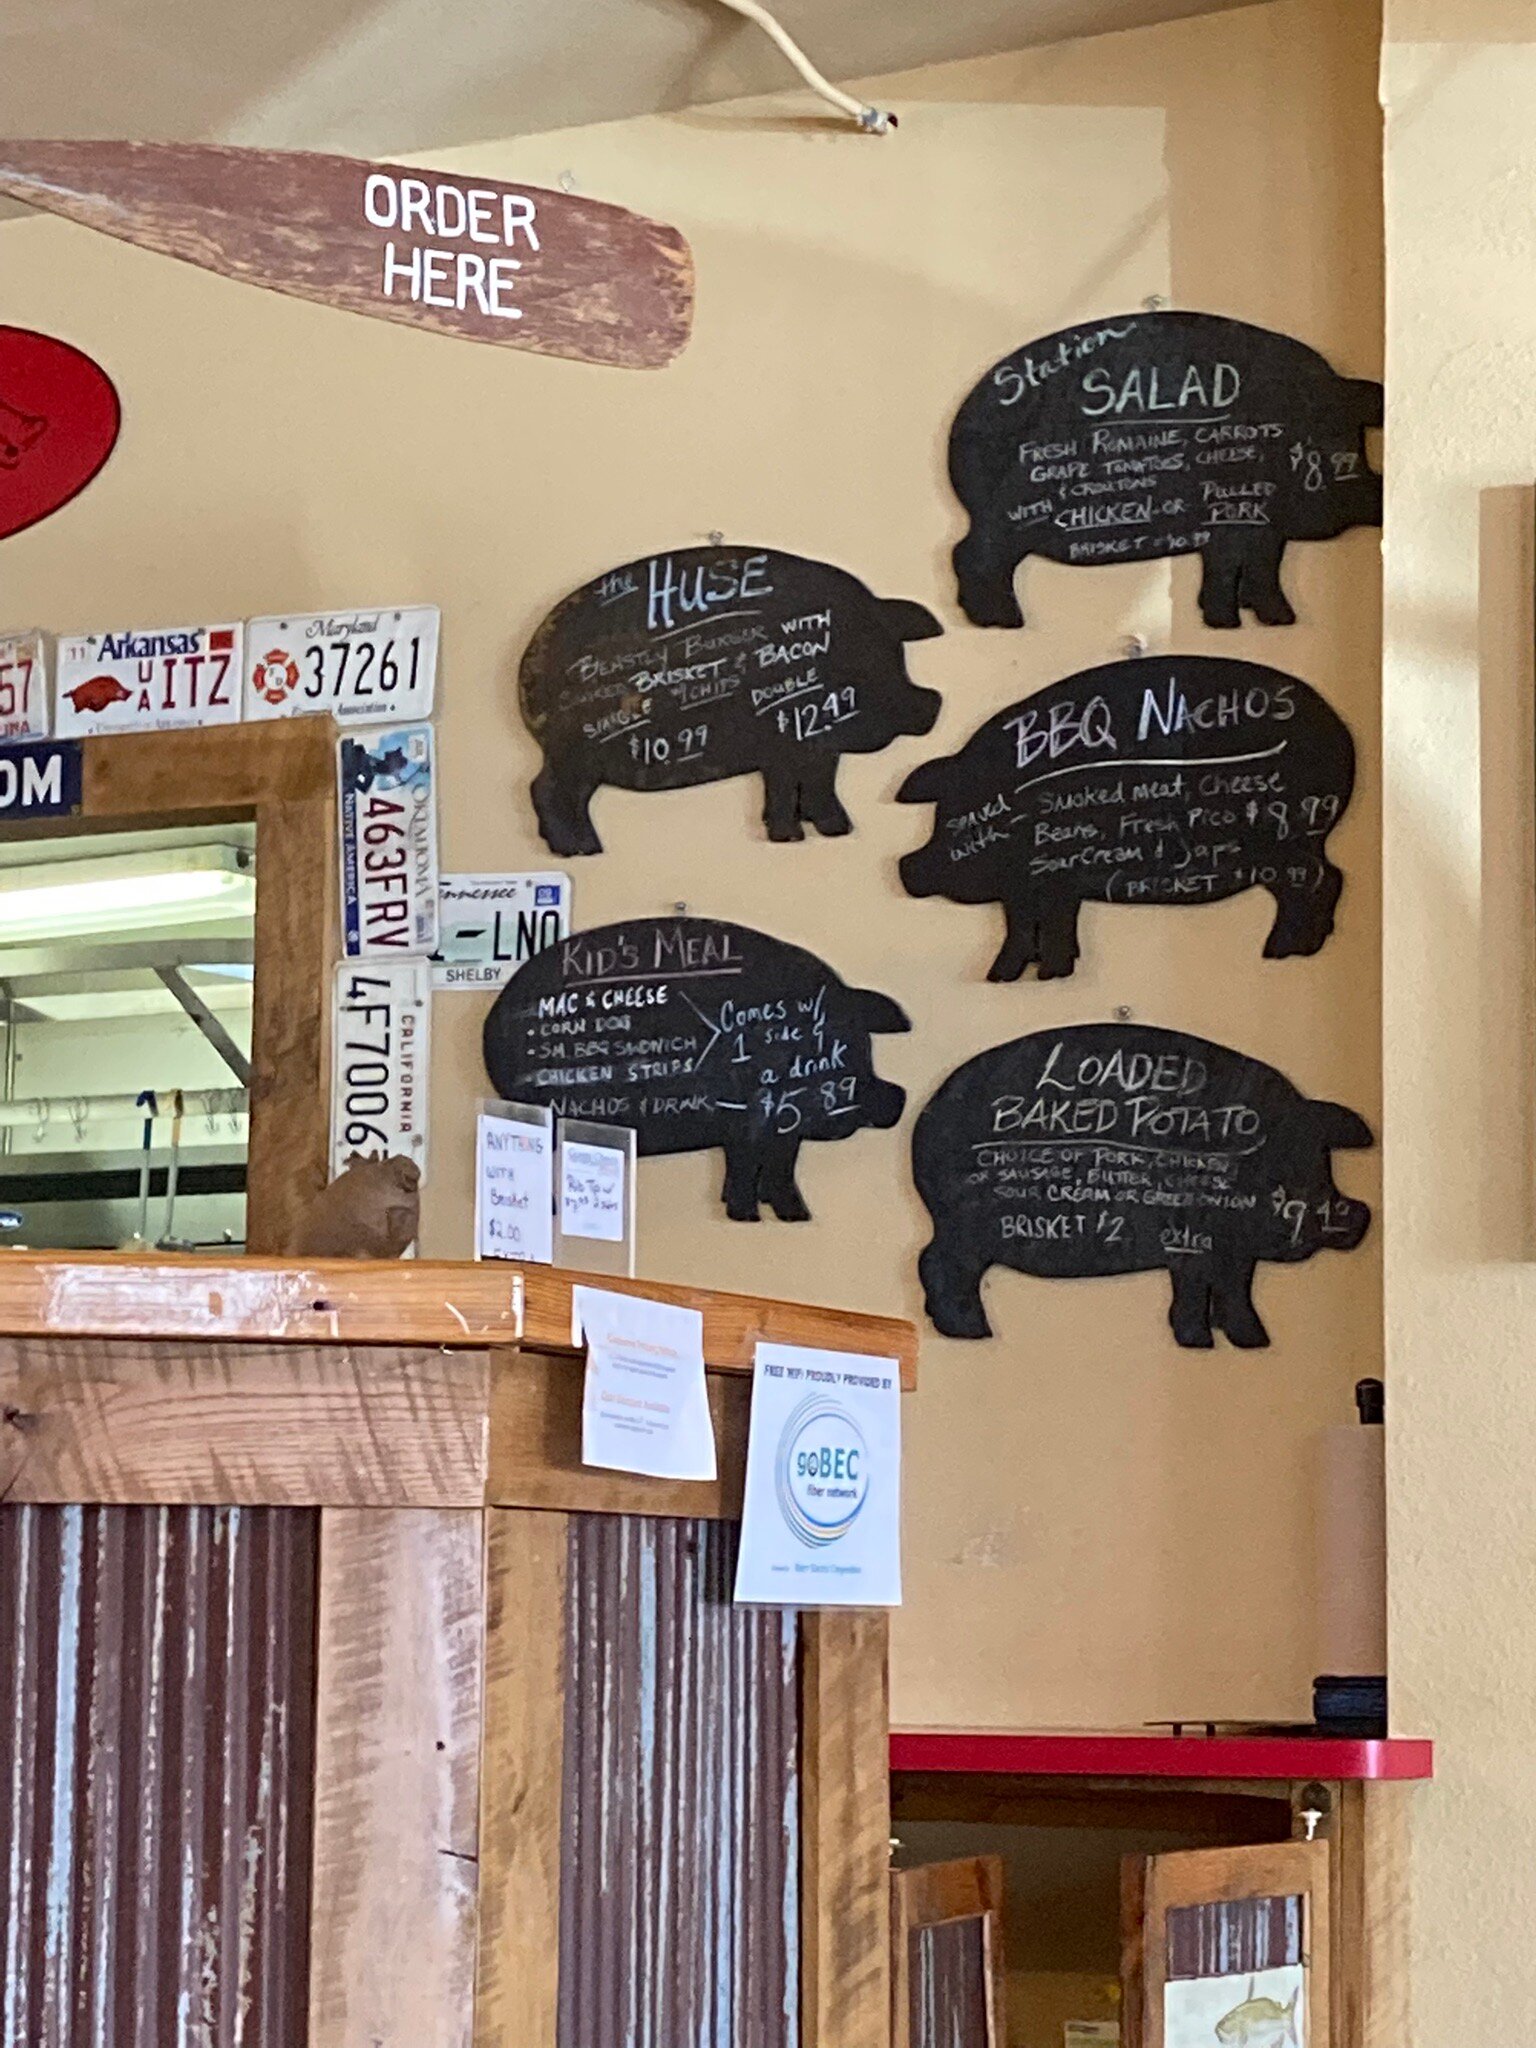 ORDER
HERE
Station
SALAD
FRESH ROMAINE, CARROTS
GRAPE TOMATOES, CHEESE,
& CROUTONS
$8.99
WITH CHICKEN OR PULLED
PORK
BRISKET $10.99
the HUSE
BEASTLY BURGER WITH
SMOKED BRISKET & BACON
SINGLE w/CHIPS DOUBLE
$10.99 $12.49
BBQ NACHOS
served
with - Smoked meat, Cheese
Beans, Fresh Pico $8.99
Sour Cream & Japs
(BRISKET $10.99)
KID'S MEAL
MAC & CHEESE
• CORN DOG
• SM. BBQ SANDWICH
• CHICKEN STRIPS
Comes w/
1 side &
a drink
NACHOS & DRINK — $5.89
LOADED
BAKED POTATO
CHOICE OF PORK, CHICKEN,
OR SAUSAGE, BUTTER, CHEESE
SOUR CREAM OR GREEN ONION
$9.49
BRISKET $2 extra
57
11 Arkansas
UA ITZ
Maryland
37261
OM
OKLAHOMA
463FRV
NATIVE AMERICA
Tennessee
-LNQ
SHELBY
CALIFORNIA
4F7006
ANYTHING
WITH
Brisket
$2.00
EXTRA
FREE WIFI PROUDLY PROVIDED BY
goBEC
fiber network